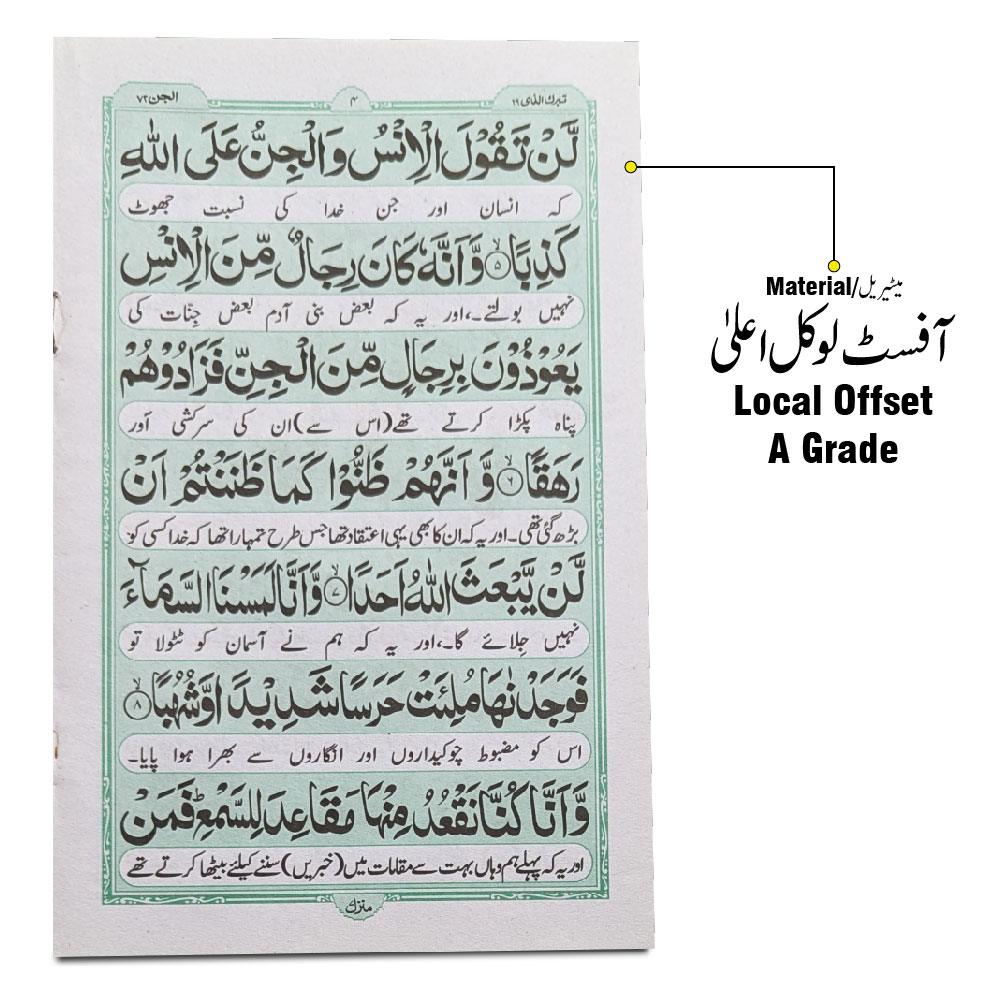 تبرك الذى ۲۹
۴
الجن ۷۲
لَّنْ تَقُوْلَ الْاِنْسُ وَالْجِنُّ عَلَى اللّٰهِ
کہ انسان اور جن خدا کی نسبت جھوٹ
كَذِبًا ۙ‏﴿۵﴾ وَّاَنَّهٗ كَانَ رِجَالٌ مِّنَ الْاِنْسِ
نہیں بولتے۔،اور یہ کہ بعض بنی آدم بعض جنّات کی
يَعُوْذُوْنَ بِرِجَالٍ مِّنَ الْجِنِّ فَزَادُوْهُمْ
پناہ پکڑا کرتے تھے(اس سے)ان کی سرکشی اور
رَهَقًا ۙ‏﴿۶﴾ وَّ اَنَّهُمْ ظَنُّوْا كَمَا ظَنَنْتُمْ اَنْ
بڑھ گئی تھی۔اور یہ کہ ان کا بھی یہی اعتقاد تھا جس طرح تمہارا تھا کہ خدا کسی کو
لَّنْ يَّبْعَثَ اللّٰهُ اَحَدًا ۙ‏﴿۷﴾ وَّاَنَّا لَمَسْنَا السَّمَآءَ
نہیں جِلائے گا۔،اور یہ کہ ہم نے آسمان کو ٹٹولا تو
فَوَجَدْنٰهَا مُلِئَتْ حَرَسًا شَدِيْدًا وَّشُهُبًا ۙ‏﴿۸﴾
اس کو مضبوط چوکیداروں اور انگاروں سے بھرا ہوا پایا۔
وَّاَنَّا كُنَّا نَقْعُدُ مِنْهَا مَقَاعِدَ لِلسَّمْعِ ؕ فَمَنْ
اور یہ کہ پہلے ہم وہاں بہت سے مقامات میں(خبریں)سننے کیلئے بیٹھا کرتے تھے
Material/میٹیریل
آفسٹ لوکل اعلیٰ
Local Offset
A Grade